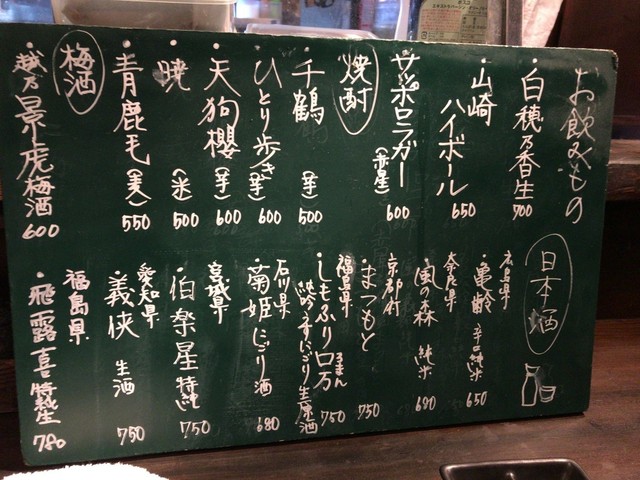 お飲みもの
・白穂乃香生 700
・山崎
ハイボール 650
サッポロラガー
(赤星) 600
焼酎
・千鶴 (芋) 500
・ひとり歩き (芋) 600
・天狗櫻 (芋) 600
・暁 (米) 500
・青鹿毛 (麦) 550
梅酒
・越乃景虎梅酒 600
日本酒
広島県
・亀齢 辛純米 650
奈良県
・風の森 純米 680
京都府
・まつもと 750
福島県
・しもふり口万 ろまん
純吟うすにごり生原酒 750
石川県
・菊姫にごり酒 680
宮城県
・伯楽星 特純 750
愛知県
・義侠 生酒 750
福島県
・飛露喜 特純生 780